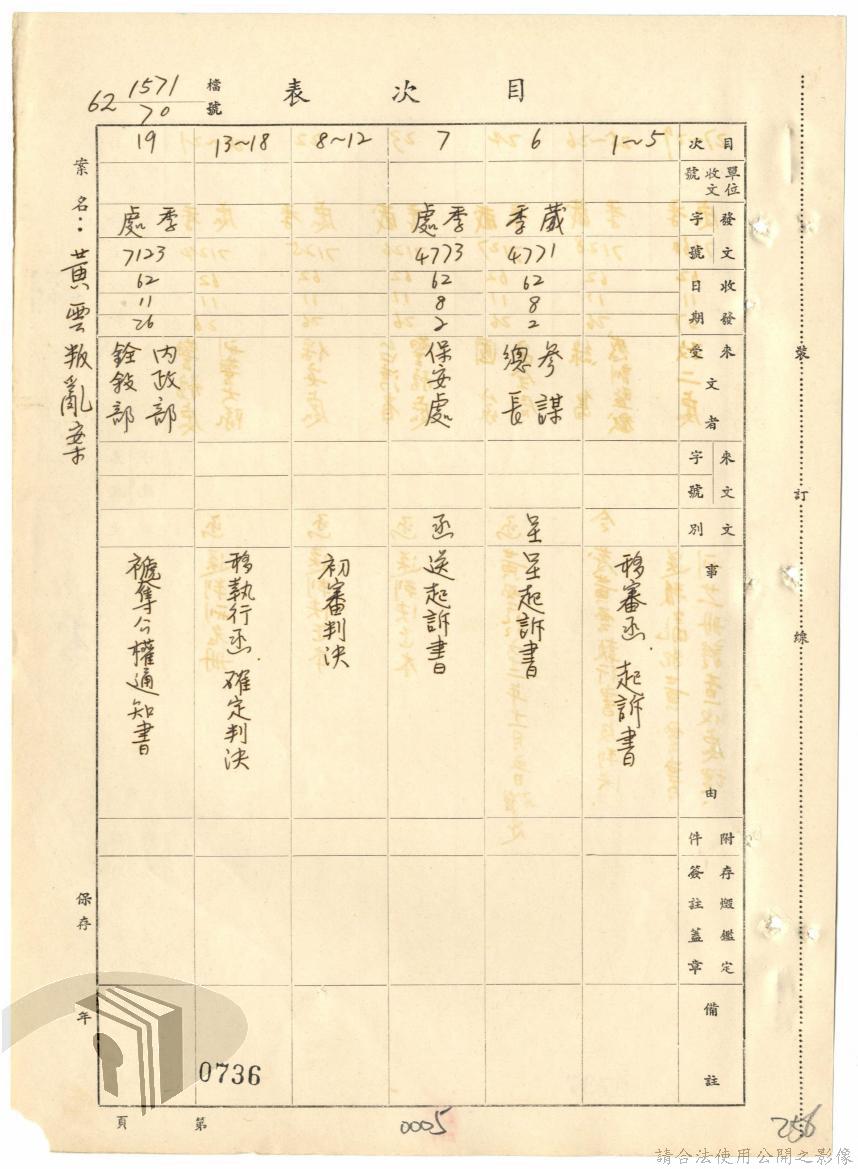 目次表
檔號
62 1571/70
目次
單位收文號
發文字號
收發日期
來文受文者
來文字號
文別
事由
附件
存燬鑑定簽註蓋章
備註
1~5
移審函.起訴書
6
季蕆
4771
62
8
2
參謀總長
呈
呈起訴書
7
季處
4773
62
8
2
保安處
函
送起訴書
8~12
初審判決
13~18
移執行函.確定判決
19
季處
7123
62
11
26
內政部
銓敘部
褫奪公權通知書
案名:黃雲叛亂案
保存 年
裝訂線
第 頁
0736
0005
256
請合法使用公開之影像